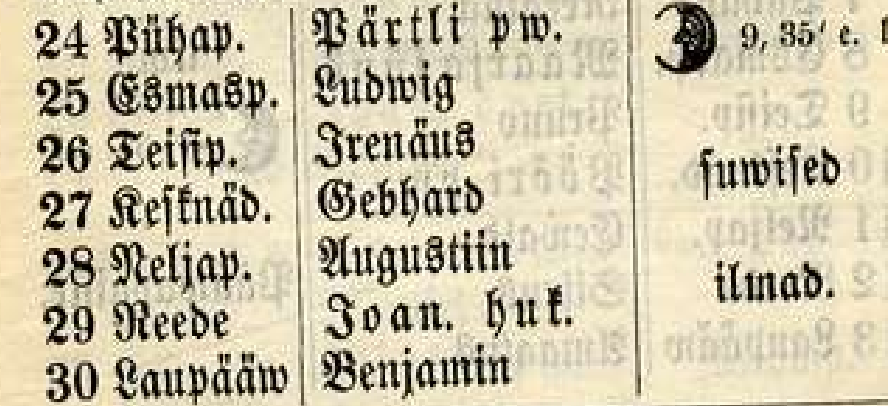 24 Pühap. Pärtli pw. 9, 35′ e.
25 Esmasp. Ludwig
26 Teisip. Irenäus
27 Kesknäd. Gebhard suwised
28 Neljap. Augustiin
29 Reede Joan. huk. ilmad.
30 Laupääw Benjamin